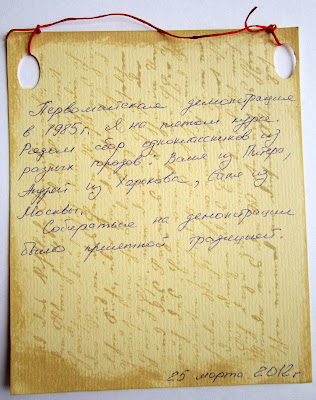 Первомайская демонстрация
в 1985г. Я на пятом курсе.
Рядом сбор одноклассников из
разных городов - Ваня из Питера,
Андрей из Харькова, Саня из
Москвы.
Собираться на демонстрации
было приятной традицией.
25 марта 2012г